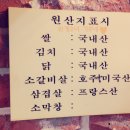 원산지표시
쌀 : 국내산
김치 : 국내산
닭 : 국내산
소갈비살 : 호주산미국산
삼겹살 : 프랑스산
소막창 :